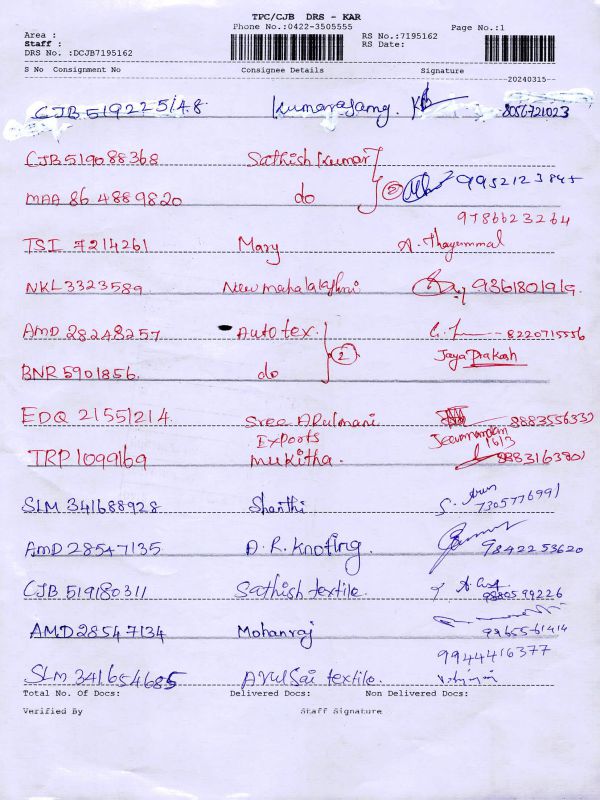 TPC/CJB DRS - KAR
Phone No.:0422-3505555
Page No.:1
Area :
Staff :
RS No.:7195162
DRS No. :DCJB7195162
RS Date:
S No Consignment No Consignee Details Signature
20240315
CJB 519225148 Kumarajang. 8056721023
CJB 519088368 Sathish kumar
MAA 864889820 do 2 9952123845
9786623264
TSI 7214261 Mary A. Thayammal
NKL 3323589 New mahalakshmi 9361801919
AMD 28248257 Auto tex. 8220715556
BNR 5901856 do 2 Jaya Prakash
EDQ 21551214 Sree ARulmani 8883556332
Exports 16/3
TRP 1099169 mukitha. 8883163801
SLM 341688928 Shanthi S. Arun
7305776991
AMD 28547135 A.R. Knoting. 9842253620
CJB 519180311 Sathish textile. 9880599226
AMD 28547134 Mohanraj 9965561414
9944416377
SLM 341654685 ARulSai textile.
Total No. Of Docs: Delivered Docs: Non Delivered Docs:
Verified By Staff Signature